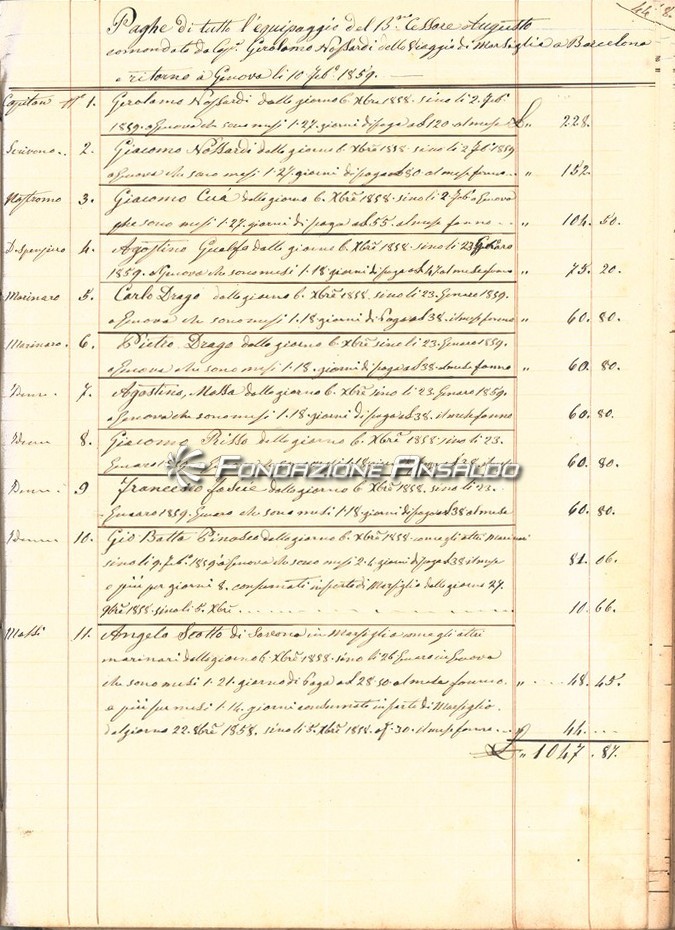 Paghe di tutto l'equipaggio del B.no Cesare Augusto
comandato da Cap.n Gerolamo Nossardi dello Viaggio di Marsiglia a Barcelona
e ritorno a Genova li 10 Feb.o 1859.
Capitan n.o 1. Gerolamo Nossardi dalle giorno 6. Xbre 1858. sino li 2. Feb.o
1859. a Genova che sono mesi 1.27. giorni di paga a £120. al mese £ 228.
Scrivano. 2. Giacomo Nossardi dalle giorno 6. Xbre 1858. sino li 2 Feb.o 1859
a Genova che sono mesi 1.27. giorni di paga a £80 al mese fanno „ 152.
Nostromo 3. Giacomo Cuá dalle giorno 6. Xbre 1858. sino li 2 Feb.o a Genova
che sono mesi 1.27. giorni di paga a £55. al mese fanno „ 104. 50.
Dispensiero 4. Agostino dalle giorno 6. Xbre 1858 sino li 23
1859. a Genova che sono mesi 1.18 giorni di paga a £47 al mese fanno „ 75. 20.
Marinaro 5. Carlo Drago dalle giorno 6. Xbre 1858. sino li 23. Genaro 1859.
a Genova che sono mesi 1.18 giorni di Paga a £38. il mese fanno „ 60. 80.
Marinaro. 6. Pietro Drago dalle giorno 6. Xbre 1858 sino li 23. Genaro 1859
a Genova che sono mesi 1.18. giorni di paga a £38. al mese fanno „ 60. 80.
Idem 7. Agostino Massa dalle giorno 6. Xbre 1858. sino li 23 Genaro 1859.
a Genova che sono mesi 1.18 giorni di paga a £38. il mese fanno 60. 80.
Idem 8. Giacomo Risso dalle giorno 6. Xbre 1858. sino li 23.
Genaro 60. 80.
FONDAZIONE ANSALDO
Idem 9 Francesco dalle giorno 6. Xbre 1858. sino li 23.
Genaro 1859. Genova che sono mesi 1.18 giorni di paga a £38 al mese 60. 80.
Idem 10. Gio Batta dalle giorno 6. Xbre 1858. come gli altri Marinari
sino li 9. Feb.o 1859 a Genova che sono mesi 2.4 giorni di paga a £38 il mese 81. 06.
e più per giorni 8. consumati in porto di Marsiglia dalle giorno 27.
9bre 1858 sino li 5. Xbre 10. 66.
11. Angelo Scotto di Savona in Marsiglia come gli altri
marinari dalle giorno 6. Xbre 1858. sino li 26 Genaro in Genova
che sono mesi 1.21. giorno di Paga a £28.50. al mese fanno. „ 48. 45.
e più per mesi 1.14. giorni consumati in porto di Marsiglia
dal giorno 22. 8bre 1858. sino li 5. Xbre 1858. a £30. il mese fanno „ 44.
£ „ 1047. 87.